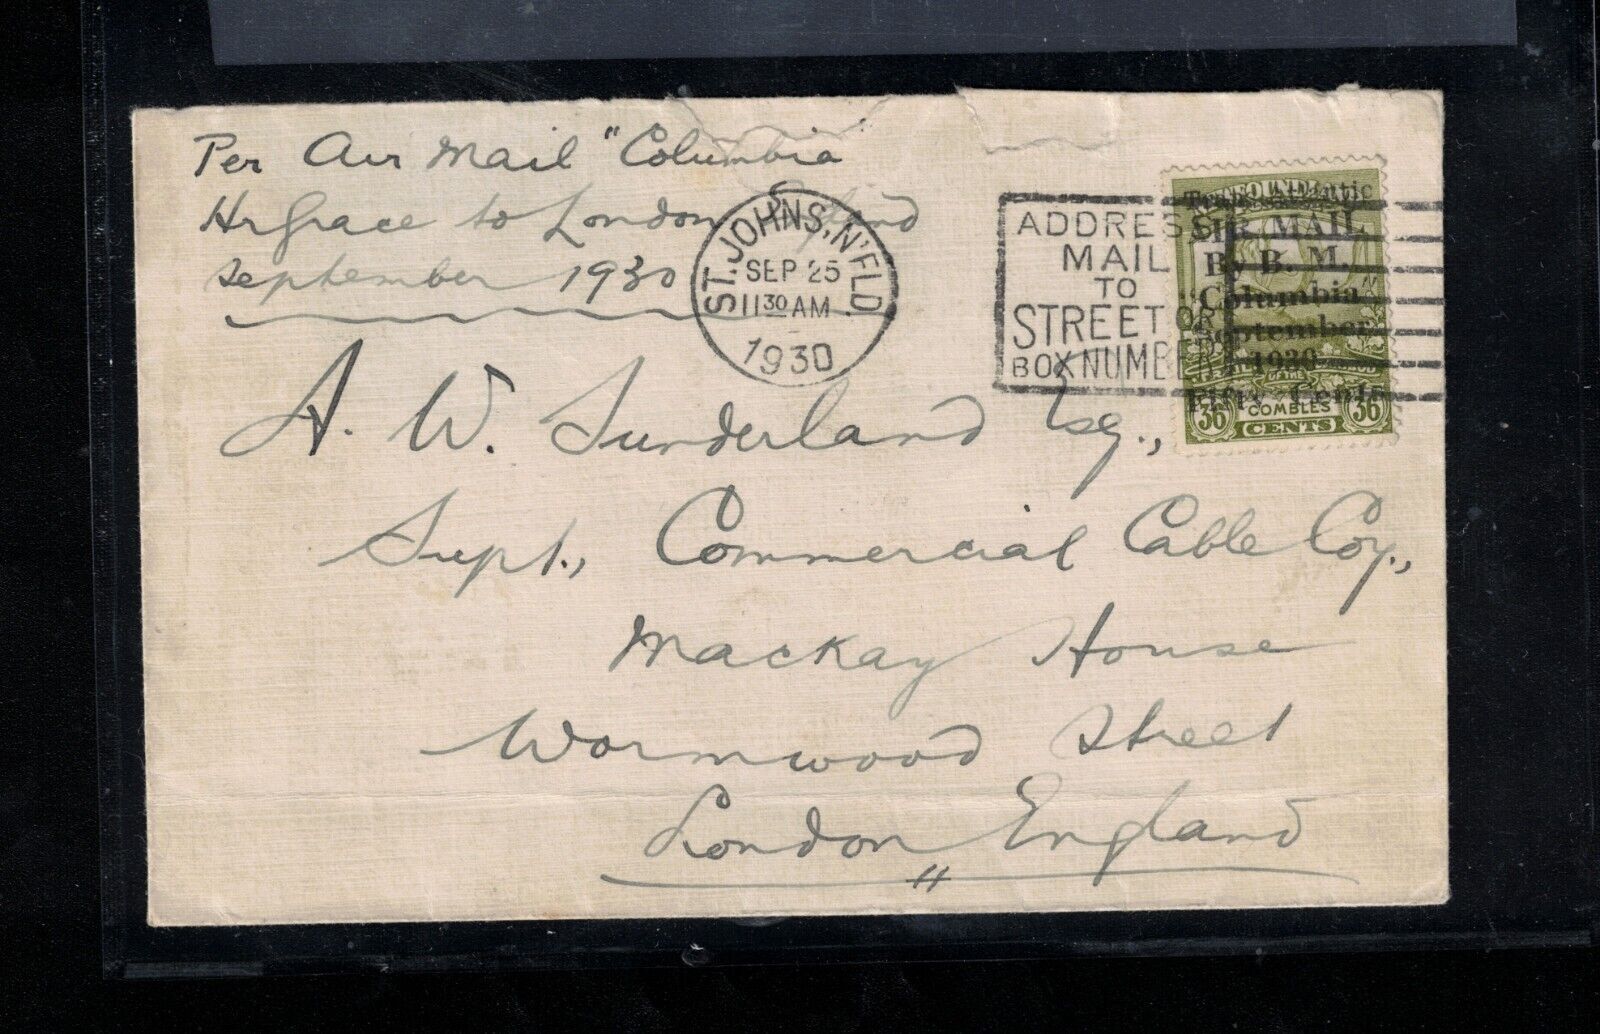 Per Air Mail "Columbia"
Hr Grace to London
September 1930
ST. JOHN'S, N'FLD.
SEP 25
11 30 AM
1930
ADDRESS
MAIL
TO
STREET OR
BOX NUMBER
Trans-Atlantic
AIR MAIL
By B. M.
"Columbia"
September
1930
Fifty Cents
COMBLES
36 CENTS 36
A. W. Sunderland Esq.,
Supt., Commercial Cable Coy.,
Mackay House
Wormwood Street
London England